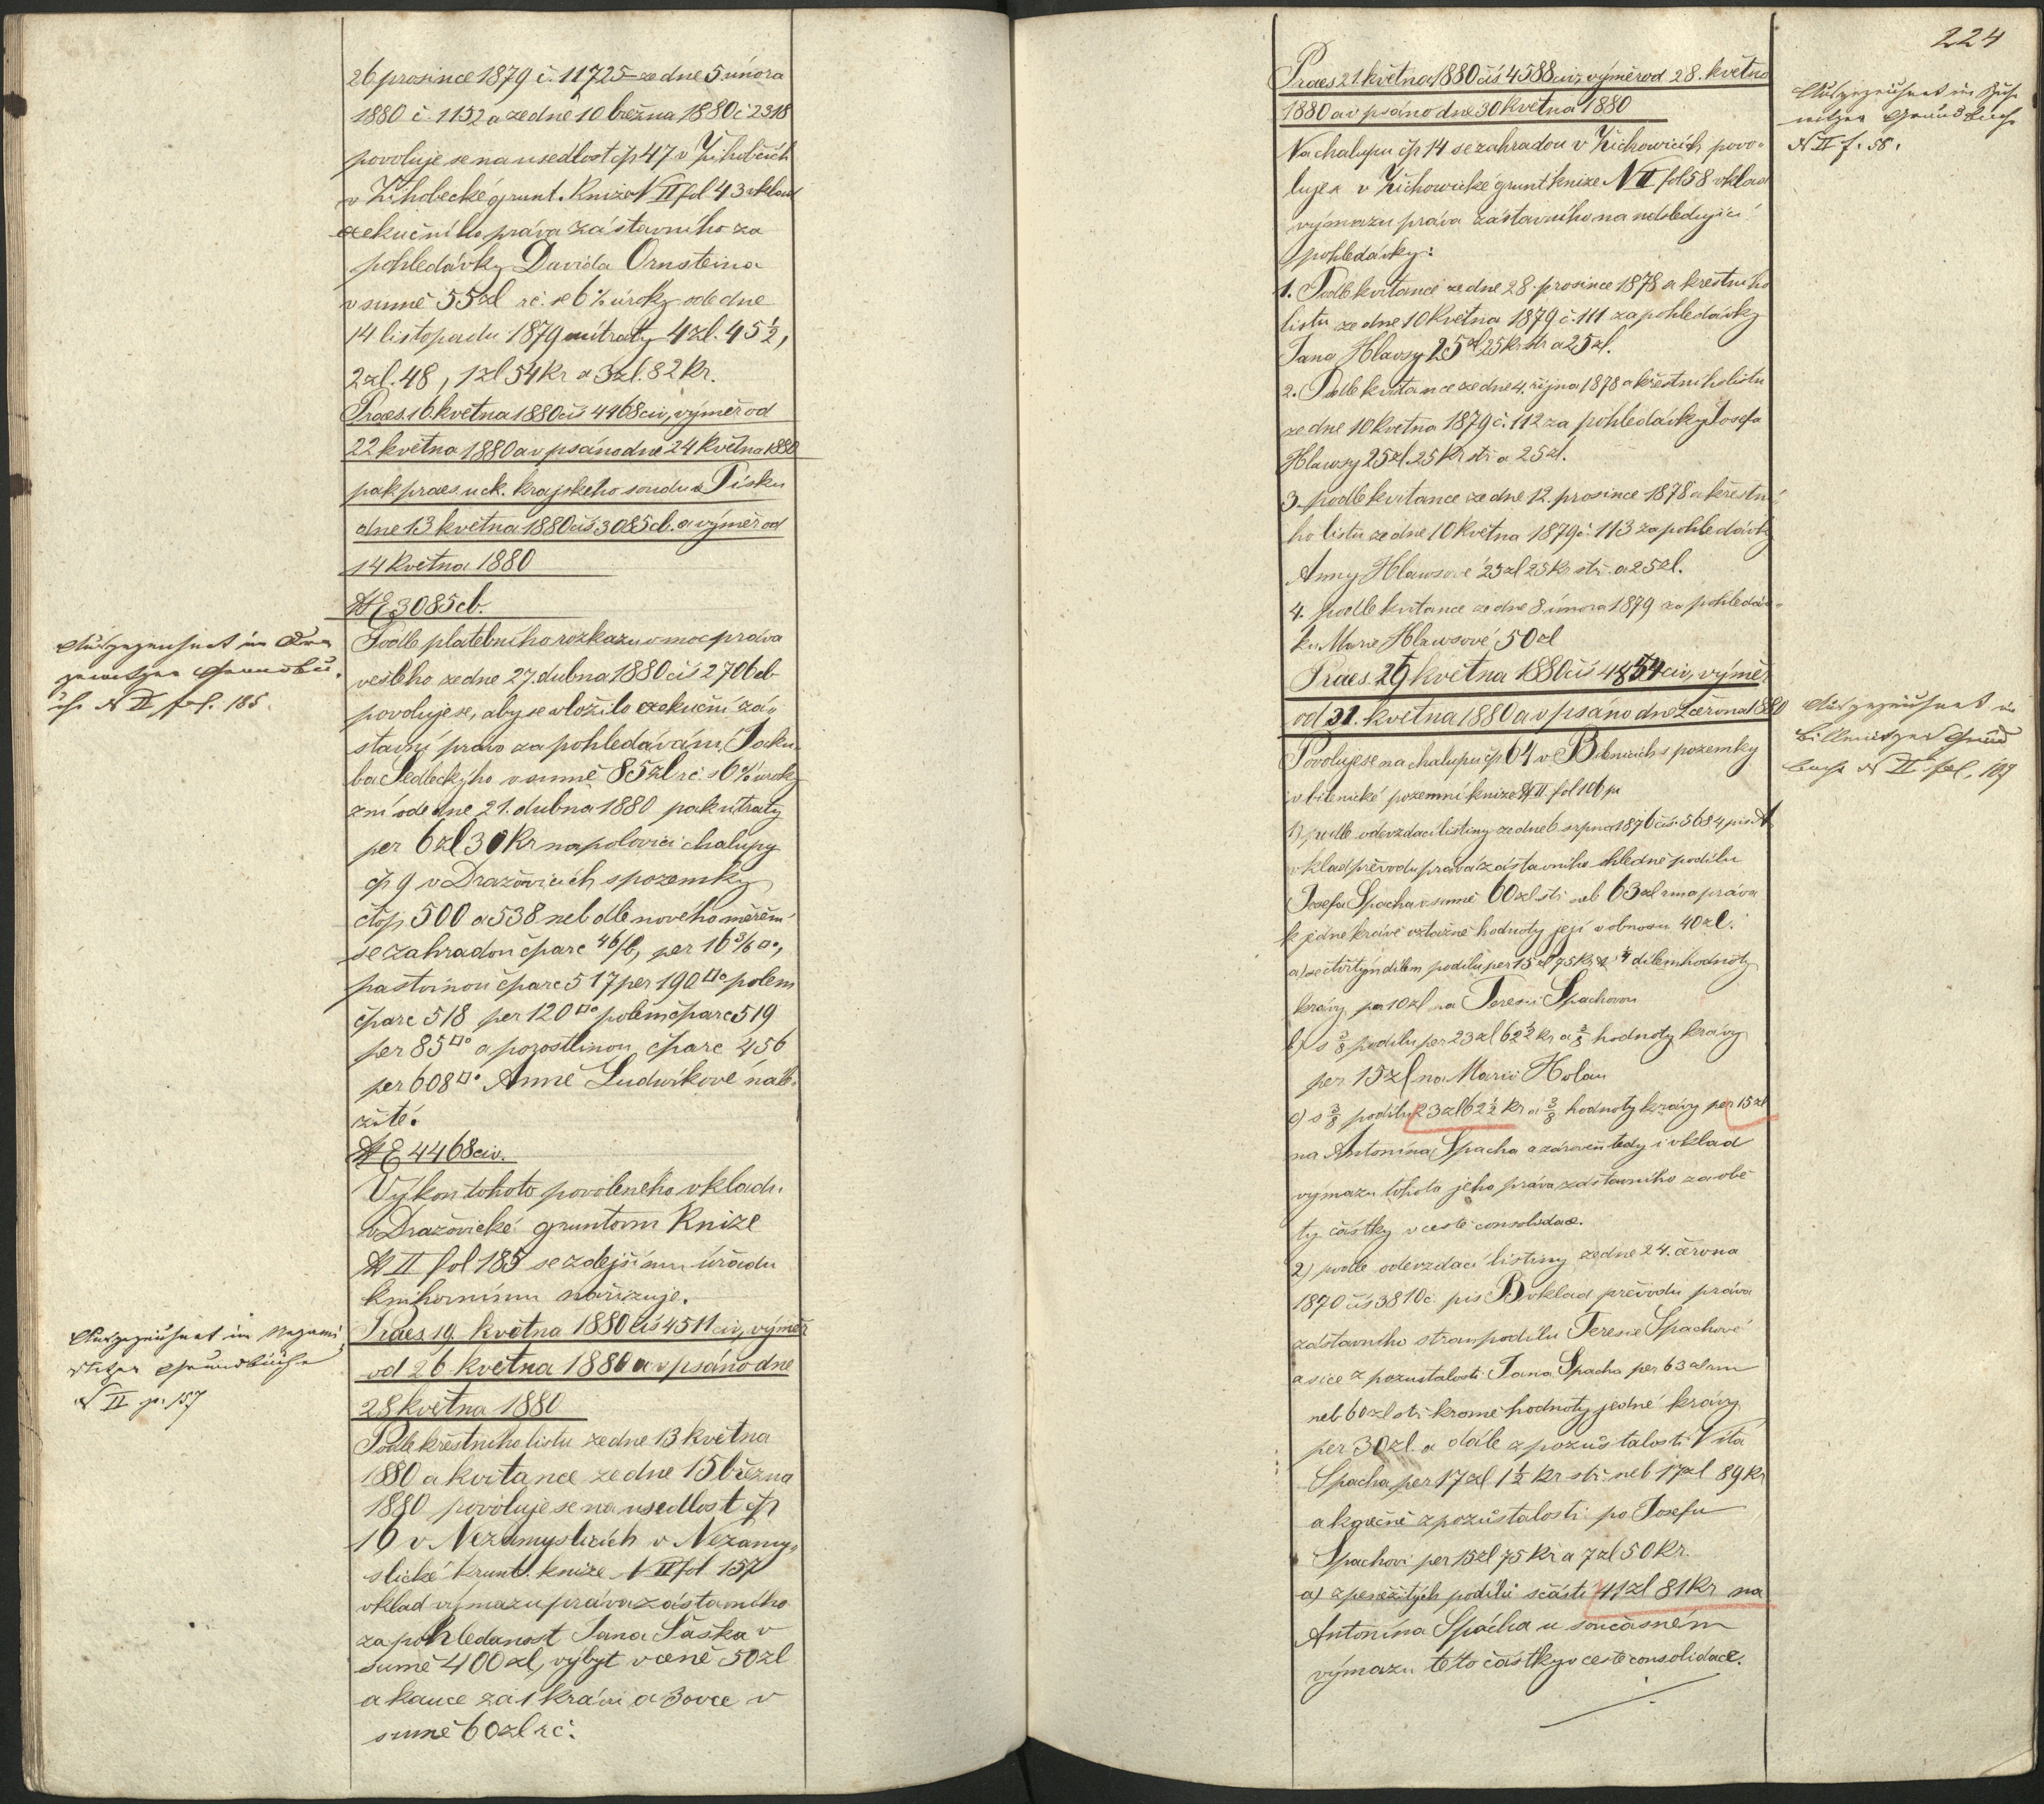 26 prosince 1879 č. 11725 ze dne 5 února
1880 č. 1152 a ze dne 10 března 1880 č 2318
povoluje se na usedlost čp 47 v Žihobcích
v Žihobecké grunt. knize N II fol 43 vklad
exekučního práva zástavního za
pohledávky Davida Ornsteina
v sumě 55 zl rč. se 6% úroky ode dne
14 listopadu 1879 a útraty 4 zl. 45 ½,
2 zl. 48, 1 zl 54 kr a 3 zl. 82 kr.
Praes. 16. května 1880 čís 4468 civ, výměr od
22 května 1880 a vpsáno dne 24 května 1880
pak praes. u ck. krajského soudu v Písku
dne 13 května 1880 čís 3085 cb. a výměr od
14 května 1880
NE 3085 cb.
Aufgezeichnet im
Grundbu
che N II fol. 185.
Podle platebního rozkazu v moc práva
vešlého ze dne 27. dubna 1880 čís 2706 cb
povoluje se, aby se vložilo exekuční zá-
stavní právo za pohledávání Jaku-
ba Sedleckýho v sumě 85 zl rč. s 6% úroky
ode dne 21. dubna 1880 pak útraty
per 6 zl 30 kr na polovici chalupy
čp 9 v Dražovicích s pozemky
čtop 500 a 538 neb dle nového měření
se zahradou čparc 46/b, per 16 3/6 □°,
pastvinou čparc 517 per 190 □° polem
čparc 518 per 120 □° polem čparc 519
per 85 □° a pozostlinou čparc 456
per 608 □° Anně Ludvíkové nále-
žité.
NE 4468 civ.
Výkon tohoto povoleného vkladu
v Dražovické gruntovní knize
N II fol 185 se zdejšímu úřadu
knihovnímu nařizuje.
Praes. 19. května 1880 čís 4511 civ, výměr
od 26 května 1880 a vpsáno dne
28 května 1880
Aufgezeichnet im Nezami
slitzer Grundbuche
N II p. 157
Podle křestního listu ze dne 13 května
1880 a kvitance ze dne 15 března
1880 povoluje se na usedlost čp
16 v Nezamyslicích v Nezamy-
slické grunt. knize N II fol 157
vklad výmazu práva zástavního
za pohledanost Jana Šaška v
sumě 400 zl, výbyt v ceně 50 zl
a kauce za 1 krávu a 3 ovce v
sumě 60 zl rč.
224
Praes 21. května 1880 čís 4588 civ, výměr od 28. května
1880 a vpsáno dne 30 května 1880
Aufgezeichnet im Zicho
witzer Grundbuche
N II f. 58.
Na chalupu čp 14 se zahradou v Žichowicích povo-
luje se v Žichowické grunt knize N II fol 58 vklad
výmazu práva zástavního na následující
pohledávky:
1. Podle kvitance ze dne 28. prosince 1878 a křestního
listu ze dne 10 května 1879 č. 111 za pohledávky
Jana Hlawsy 25 zl 25 kr stř a 25 zl.
2. Podle kvitance ze dne 4. října 1878 a křestního listu
ze dne 10 května 1879 č. 112 za pohledávky Josefa
Hlawsy 25 zl. 25 kr stř a 25 zl.
3. podle kvitance ze dne 12. prosince 1878 a křestní-
ho listu ze dne 10 května 1879 č. 113 za pohledávky
Anny Hlawsové 25 zl 25 kr stř. a 25 zl.
4. podle kvitance ze dne 8. února 1879 za pohledáv-
ku Marie Hlawsové 50 zl
Praes. 29 května 1880 čís 4854 civ, výměr
od 31. května 1880 a vpsáno dne 2 června 1880
Aufgezeichnet im
Billenitzer Grund
buche N II fol. 109
Povoluje se na chalupu čp 64 v Bilenicích s pozemky
v bilenické pozemní knize N II. fol 106 pu
1) podle odevzdací listiny ze dne 6 srpna 1876 čís. 5684 pis A
vklad převodu práva zástavního ohledně podílu
Josefa Spacha v sumě 60 zl stř neb 63 zl rm a práva
k jedné krávě vztažně hodnoty její v obnosu 40 zl.
a) se čtvrtým dílem podílu per 15 zl 75 kr a ¼ dílem hodnoty
krávy per 10 zl na Teresii Spachovou
b) s ⅜ podílu per 23 zl 62 ½ kr a ⅜ hodnoty krávy
per 15 zl na Marii Holau
c) s ⅜ podílu 23 zl 62 ½ kr a ⅜ hodnoty krávy per 15 zl
na Antonína Spacha a zároveň tedy i vklad
výmazu tohoto jeho práva zástavního za obě
ty částky v cestě consolidace.
2) podle odevzdací listiny ze dne 24. června
1870 čís 3810 č. pis B vklad převodu práva
zástavního stran podílu Teresie Spachové
a sice z pozustalosti Jana Spacha per 63 zl rm
neb 60 zl stř kromě hodnoty jedné krávy
per 30 zl. a dále z pozůstalosti Víta
Spacha per 17 zl 1 ½ kr stř. neb 17 zl 89 kr
a konečně z pozůstalosti po Josefu
Spachovi per 15 zl 75 kr a 7 zl 50 kr.
a) z peněžitých podílů s částí 41 zl 81 kr na
Antonína Spácha u současném
výmazu této částky v cestě consolidace.